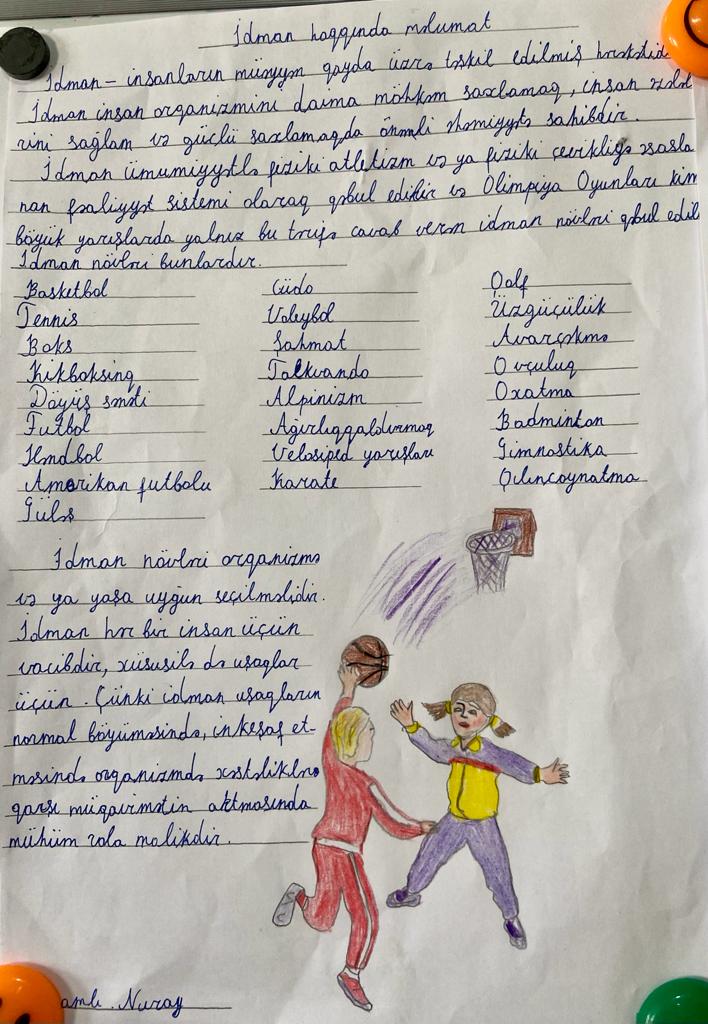 İdman haqqında məlumat
İdman – insanların müəyyən qayda üzrə təşkil edilmiş hərəkətidir
İdman insan orqanizmini daima möhkəm saxlamaq, insan əzələ
rini sağlam və güclü saxlamaqda önəmli əhəmiyyətə sahibdir.
İdman ümumiyyətlə fiziki atletizm və ya fiziki çevikliyə əsasla
nan fəaliyyət sistemi olaraq qəbul edilir və Olimpiya Oyunları kimi
böyük yarışlarda yalnız bu tərifə cavab verən idman növləri qəbul edil
İdman növləri bunlardır.
Basketbol
Tennis
Boks
Kikboksinq
Döyüş sənəti
Futbol
Həndbol
Amerikan futbolu
Güləş
Cüdo
Voleybol
Şahmat
Taekvando
Alpinizm
Ağırlıqqaldırmaq
Velosiped yarışları
Karate
Qolf
Üzgüçülük
Avarçəkmə
Ovçuluq
Oxatma
Badminton
Gimnastika
Qılıncoynatma
İdman növləri orqanizmə
və ya yaşa uyğun seçilməlidir.
İdman hər bir insan üçün
vacibdir, xüsusilə də uşaqlar
üçün. Çünki idman uşaqların
normal böyüməsində, inkişaf et-
məsində orqanizmdə xəstəliklərə
qarşı müqavimətin artmasında
mühüm rola malikdir.
amlı Nuray